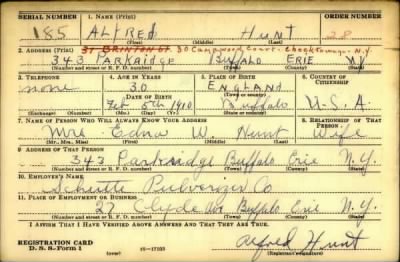 SERIAL NUMBER 1. NAME (Print) ORDER NUMBER
185 ALFRED HUNT 28
(First) (Middle) (Last)
37 BRINTON ST. 30 Court - Cheektowaga - N.Y.
2. ADDRESS (Print)
343 PARKRIDGE BUFFALO ERIE NY
(Number and street or R. F. D. number) (Town) (County) (State)
3. TELEPHONE 4. AGE IN YEARS 5. PLACE OF BIRTH 6. COUNTRY OF CITIZENSHIP
none 30 ENGLAND
DATE OF BIRTH (Town or county)
Feb 5th 1910 Buffalo U.S.A.
(Exchange) (Number) (Mo.) (Day) (Yr.) (State or country)
7. NAME OF PERSON WHO WILL ALWAYS KNOW YOUR ADDRESS 8. RELATIONSHIP OF THAT PERSON
Mrs Edna W. Hunt Wife
(Mr., Mrs., Miss) (First) (Middle) (Last)
9. ADDRESS OF THAT PERSON
343 Parkridge Buffalo Erie N.Y.
(Number and street or R. F. D. number) (Town) (County) (State)
10. EMPLOYER'S NAME
Schutte Pulverizer Co
11. PLACE OF EMPLOYMENT OR BUSINESS
27 Clyde Av Buffalo Erie N.Y.
(Number and street or R. F. D. number) (Town) (County) (State)
I AFFIRM THAT I HAVE VERIFIED ABOVE ANSWERS AND THAT THEY ARE TRUE.
REGISTRATION CARD
D. S. S. Form 1 (over) 16—17105 Alfred Hunt
(Registrant's signature)